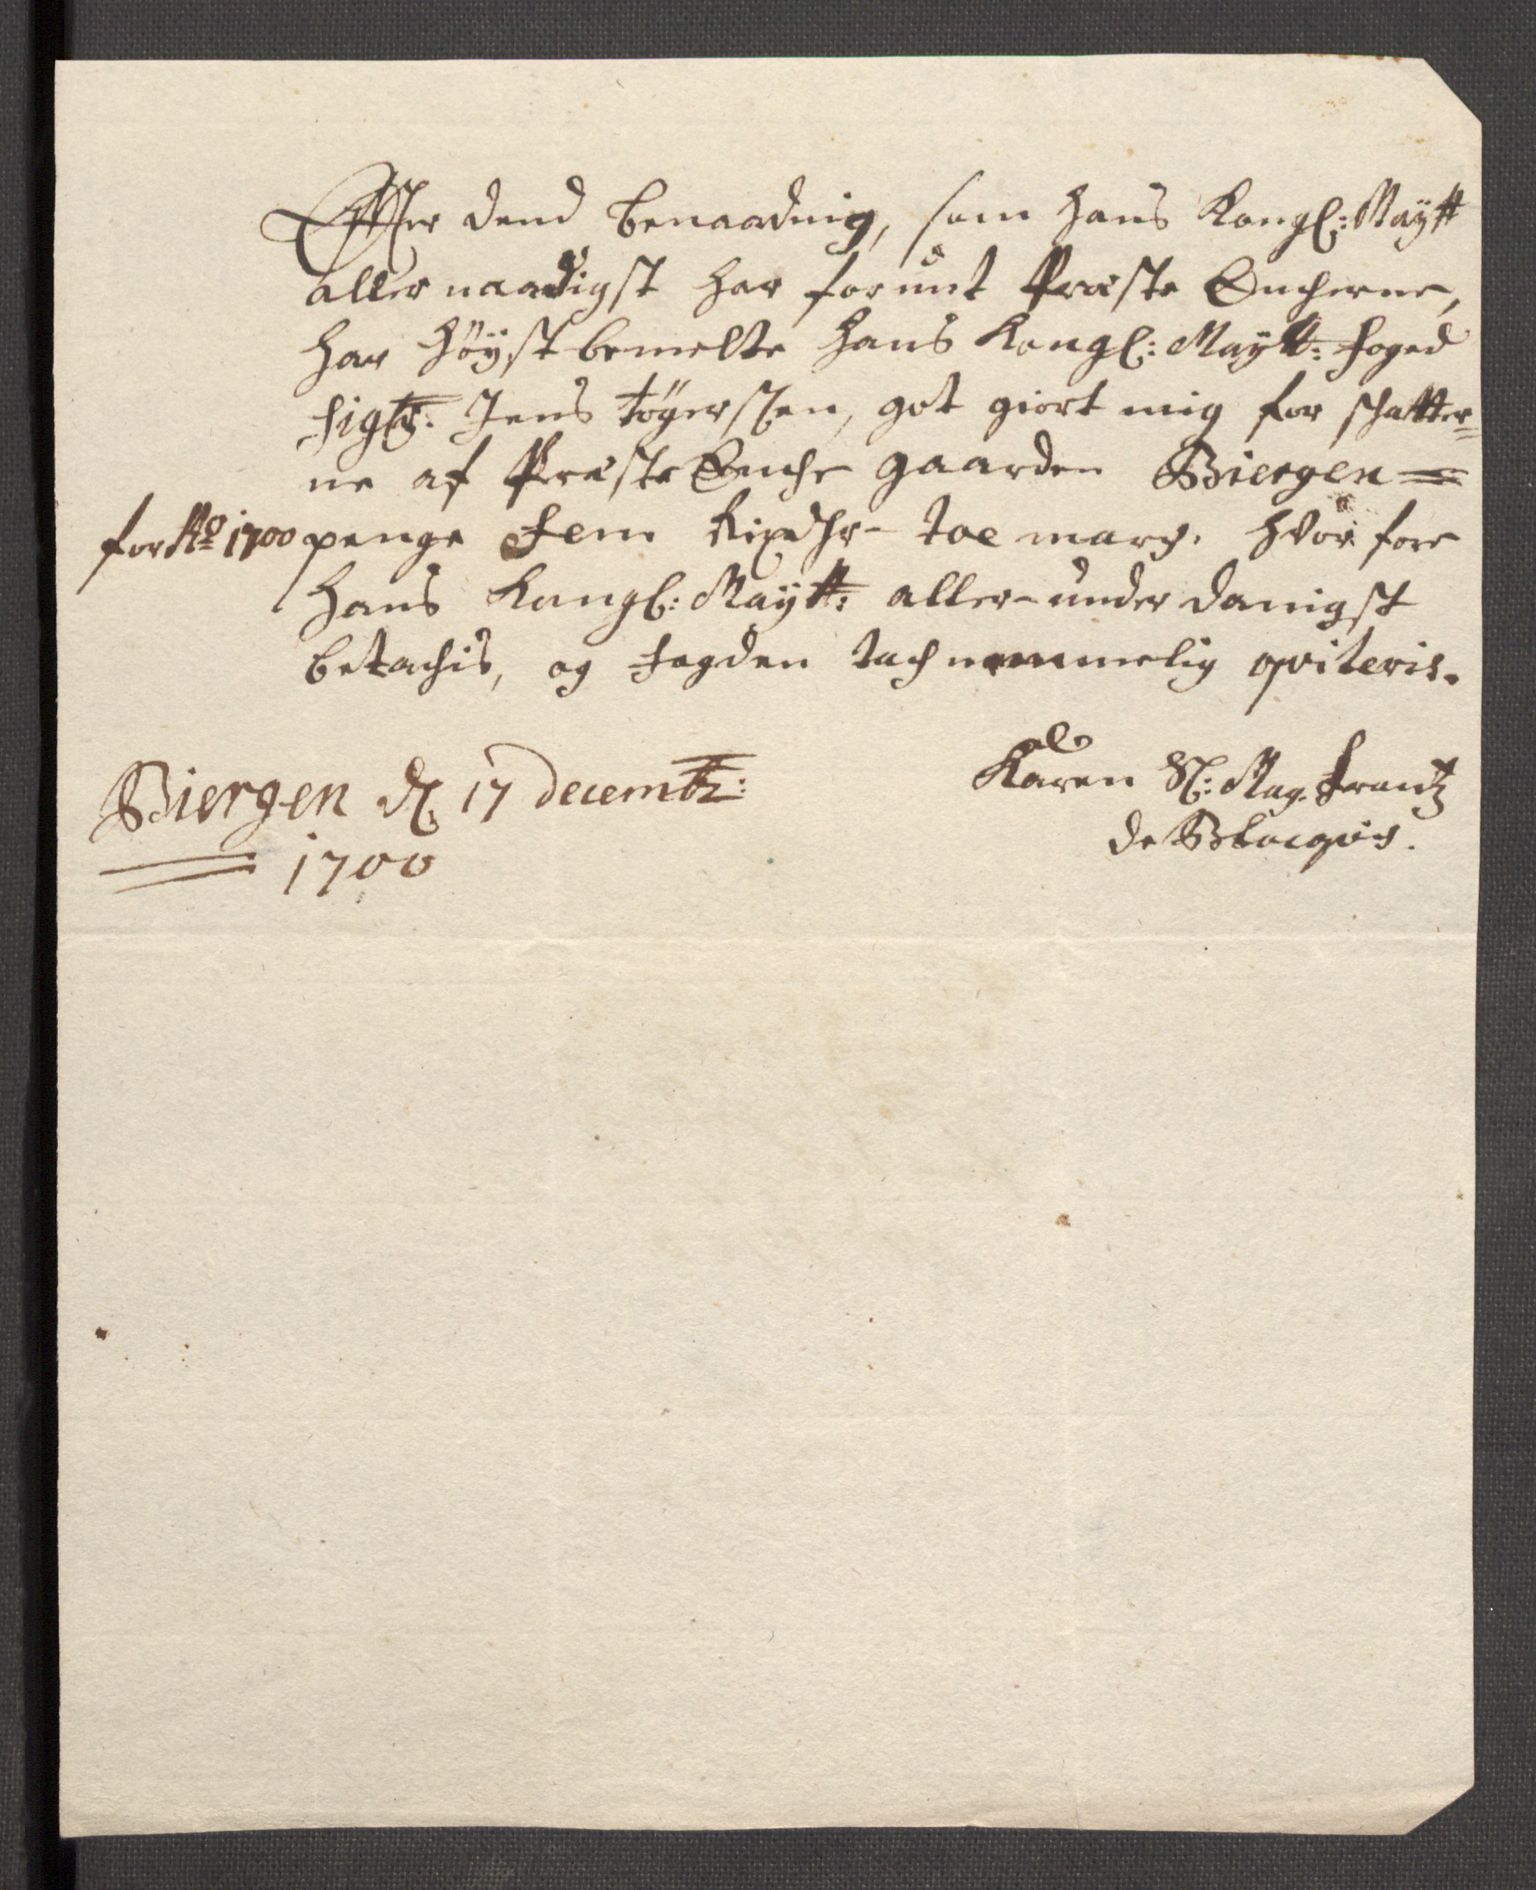 Effter dend benaadnig, som hans Kongl: Maytt
aller naadigst har forunt Præste Encherne,
har höyst bemelte hans Kongl: Maytt: foged
Sigr: Jens Töyersen, got giort mig for schatter=
ne af Præste Enche gaarden Biergen =
for Ao 1700 penge Fem Rixdhr - toe march. hvor fore
hans Kongl: Maytt: aller-under danigst
betachis, og fogden tach nemmelig qviteris.
Biergen d. 17 decembr:
1700
Karen Sl: Mag. Frantz
de Blocqvis.